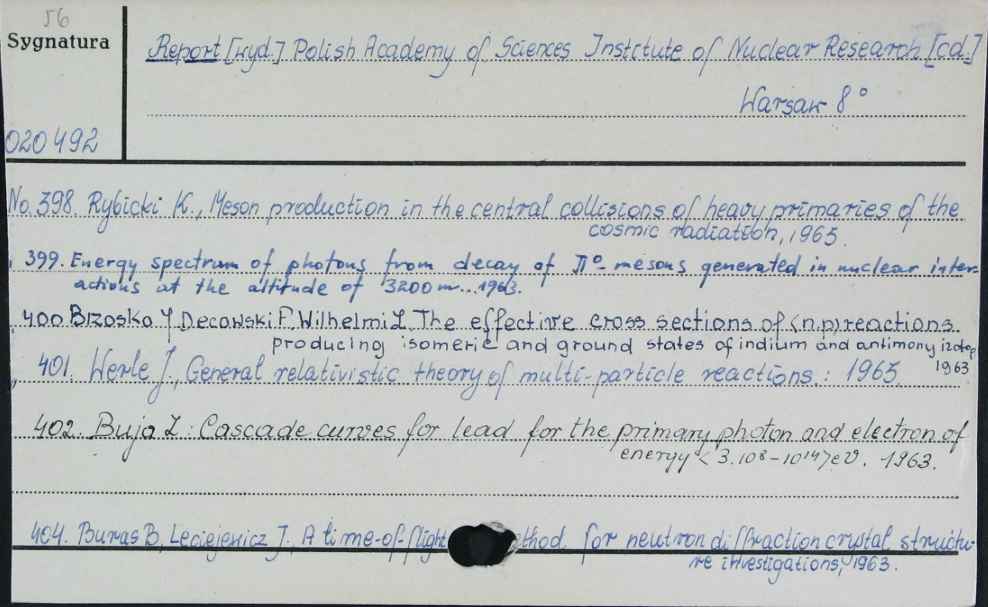 56
Sygnatura
Report [wyd.] Polish Academy of Sciences Institute of Nuclear Research [cd.]
Warsaw 8°
020492
No. 398. Rybicki K., Meson production in the central collisions of heavy primaries of the
cosmic radiation, 1963.
" 399. Energy spectrum of photons from decay of π°-mesons generated in nuclear inter-
actions at the altitude of 3200 m... 1963.
" 400 Brzosko J, Decowski P, Wilhelmi Z, The effective cross sections of (n.p) reactions.
producing isomeric and ground states of indium and antimony izotop
1963
" 401. Werle J., General relativistic theory of multi-particle reactions. : 1963.
402. Buja Z : Cascade curves for lead for the primary photon and electron of
energy < 3.10⁸-10¹⁴ > eV. 1963.
404. Buras B, Leciejewicz J., A time-of-flight ethod for neutron diffraction crystal structu-
re investigations, 1963.